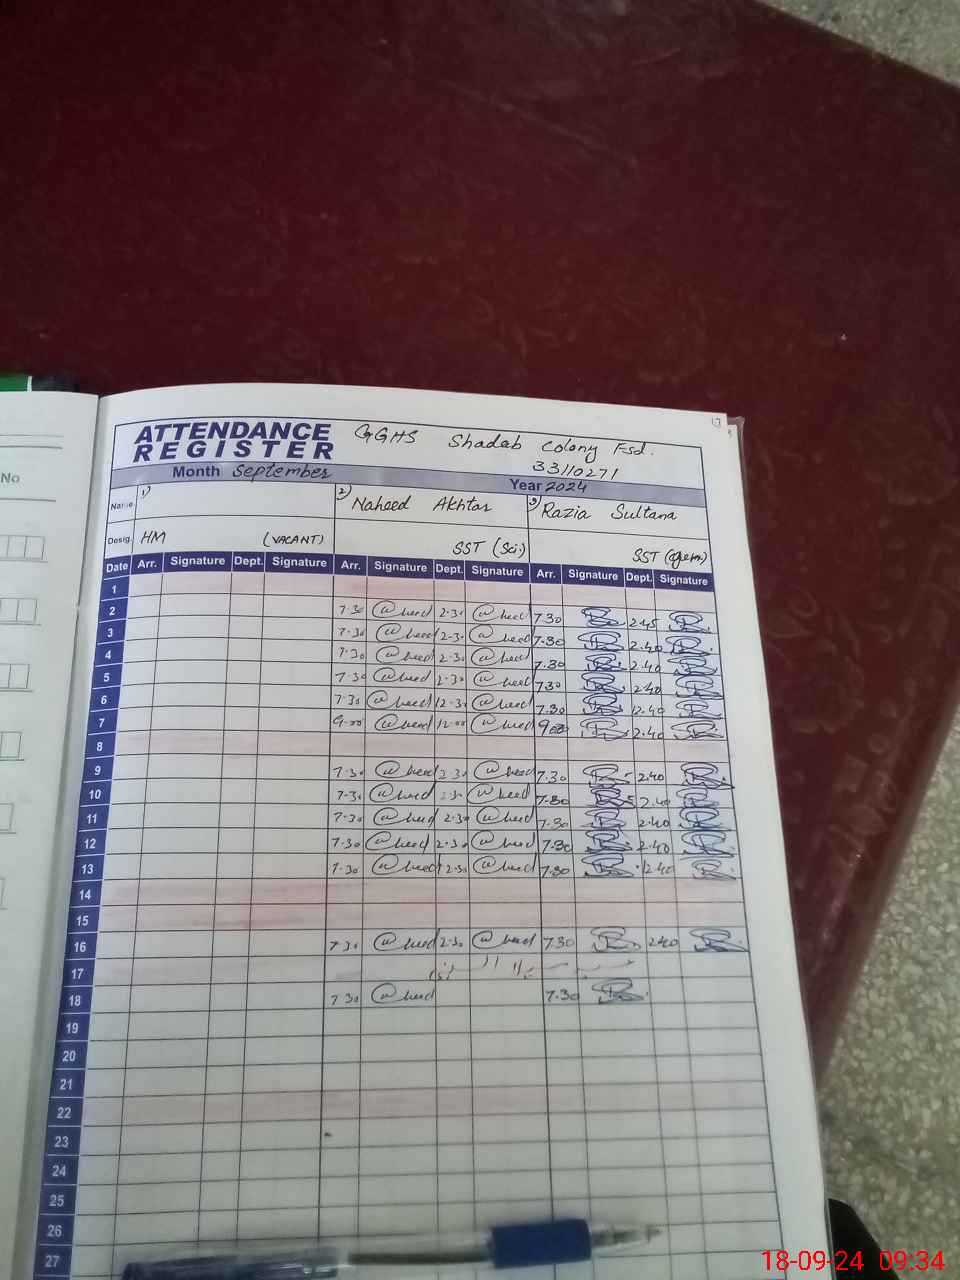 No
ATTENDANCE REGISTER GGHS Shadab Colony Fsd.
33110271
Month September Year 2024
Name 1) 2) Naheed Akhtar 3) Razia Sultana
Desig. HM (VACANT) SST (Sci.) SST
Date Arr. Signature Dept. Signature Arr. Signature Dept. Signature Arr. Signature Dept. Signature
1
2 7.30 2.30 7.30 2.45
3 7.30 2.30 7.30 2.40
4 7.30 2.30 7.30 2.40
5 7.30 2.30 7.30 2.40
6 7.30 12.30 7.30 12.40
7 9.00 12.00 9.00 2.40
8
9 7.30 2.30 7.30 2.40
10 7.30 2.30 7.30 2.40
11 7.30 2.30 7.30 2.40
12 7.30 2.30 7.30 2.40
13 7.30 12.30 7.30 12.40
14
15
16 7.30 2.30 7.30 2.40
17
18 7.30 7.30
19
20
21
22
23
24
25
26
27
18-09-24 09:34